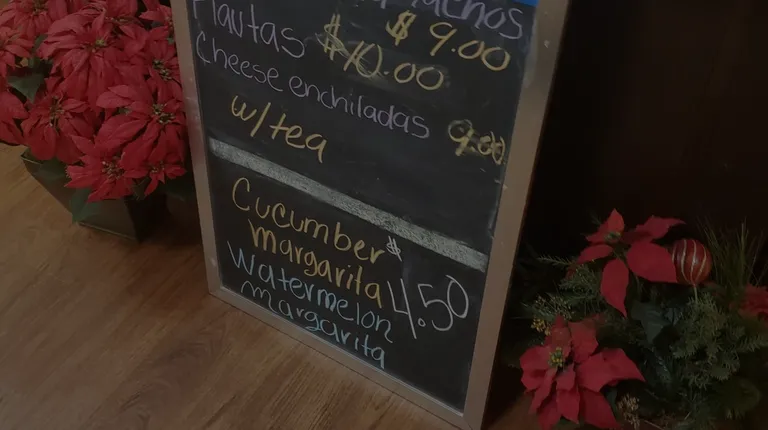 nachos
$9.00
Flautas $10.00
Cheese enchiladas 9.00
w/tea
Cucumber
margarita
$4.50
Watermelon
margarita